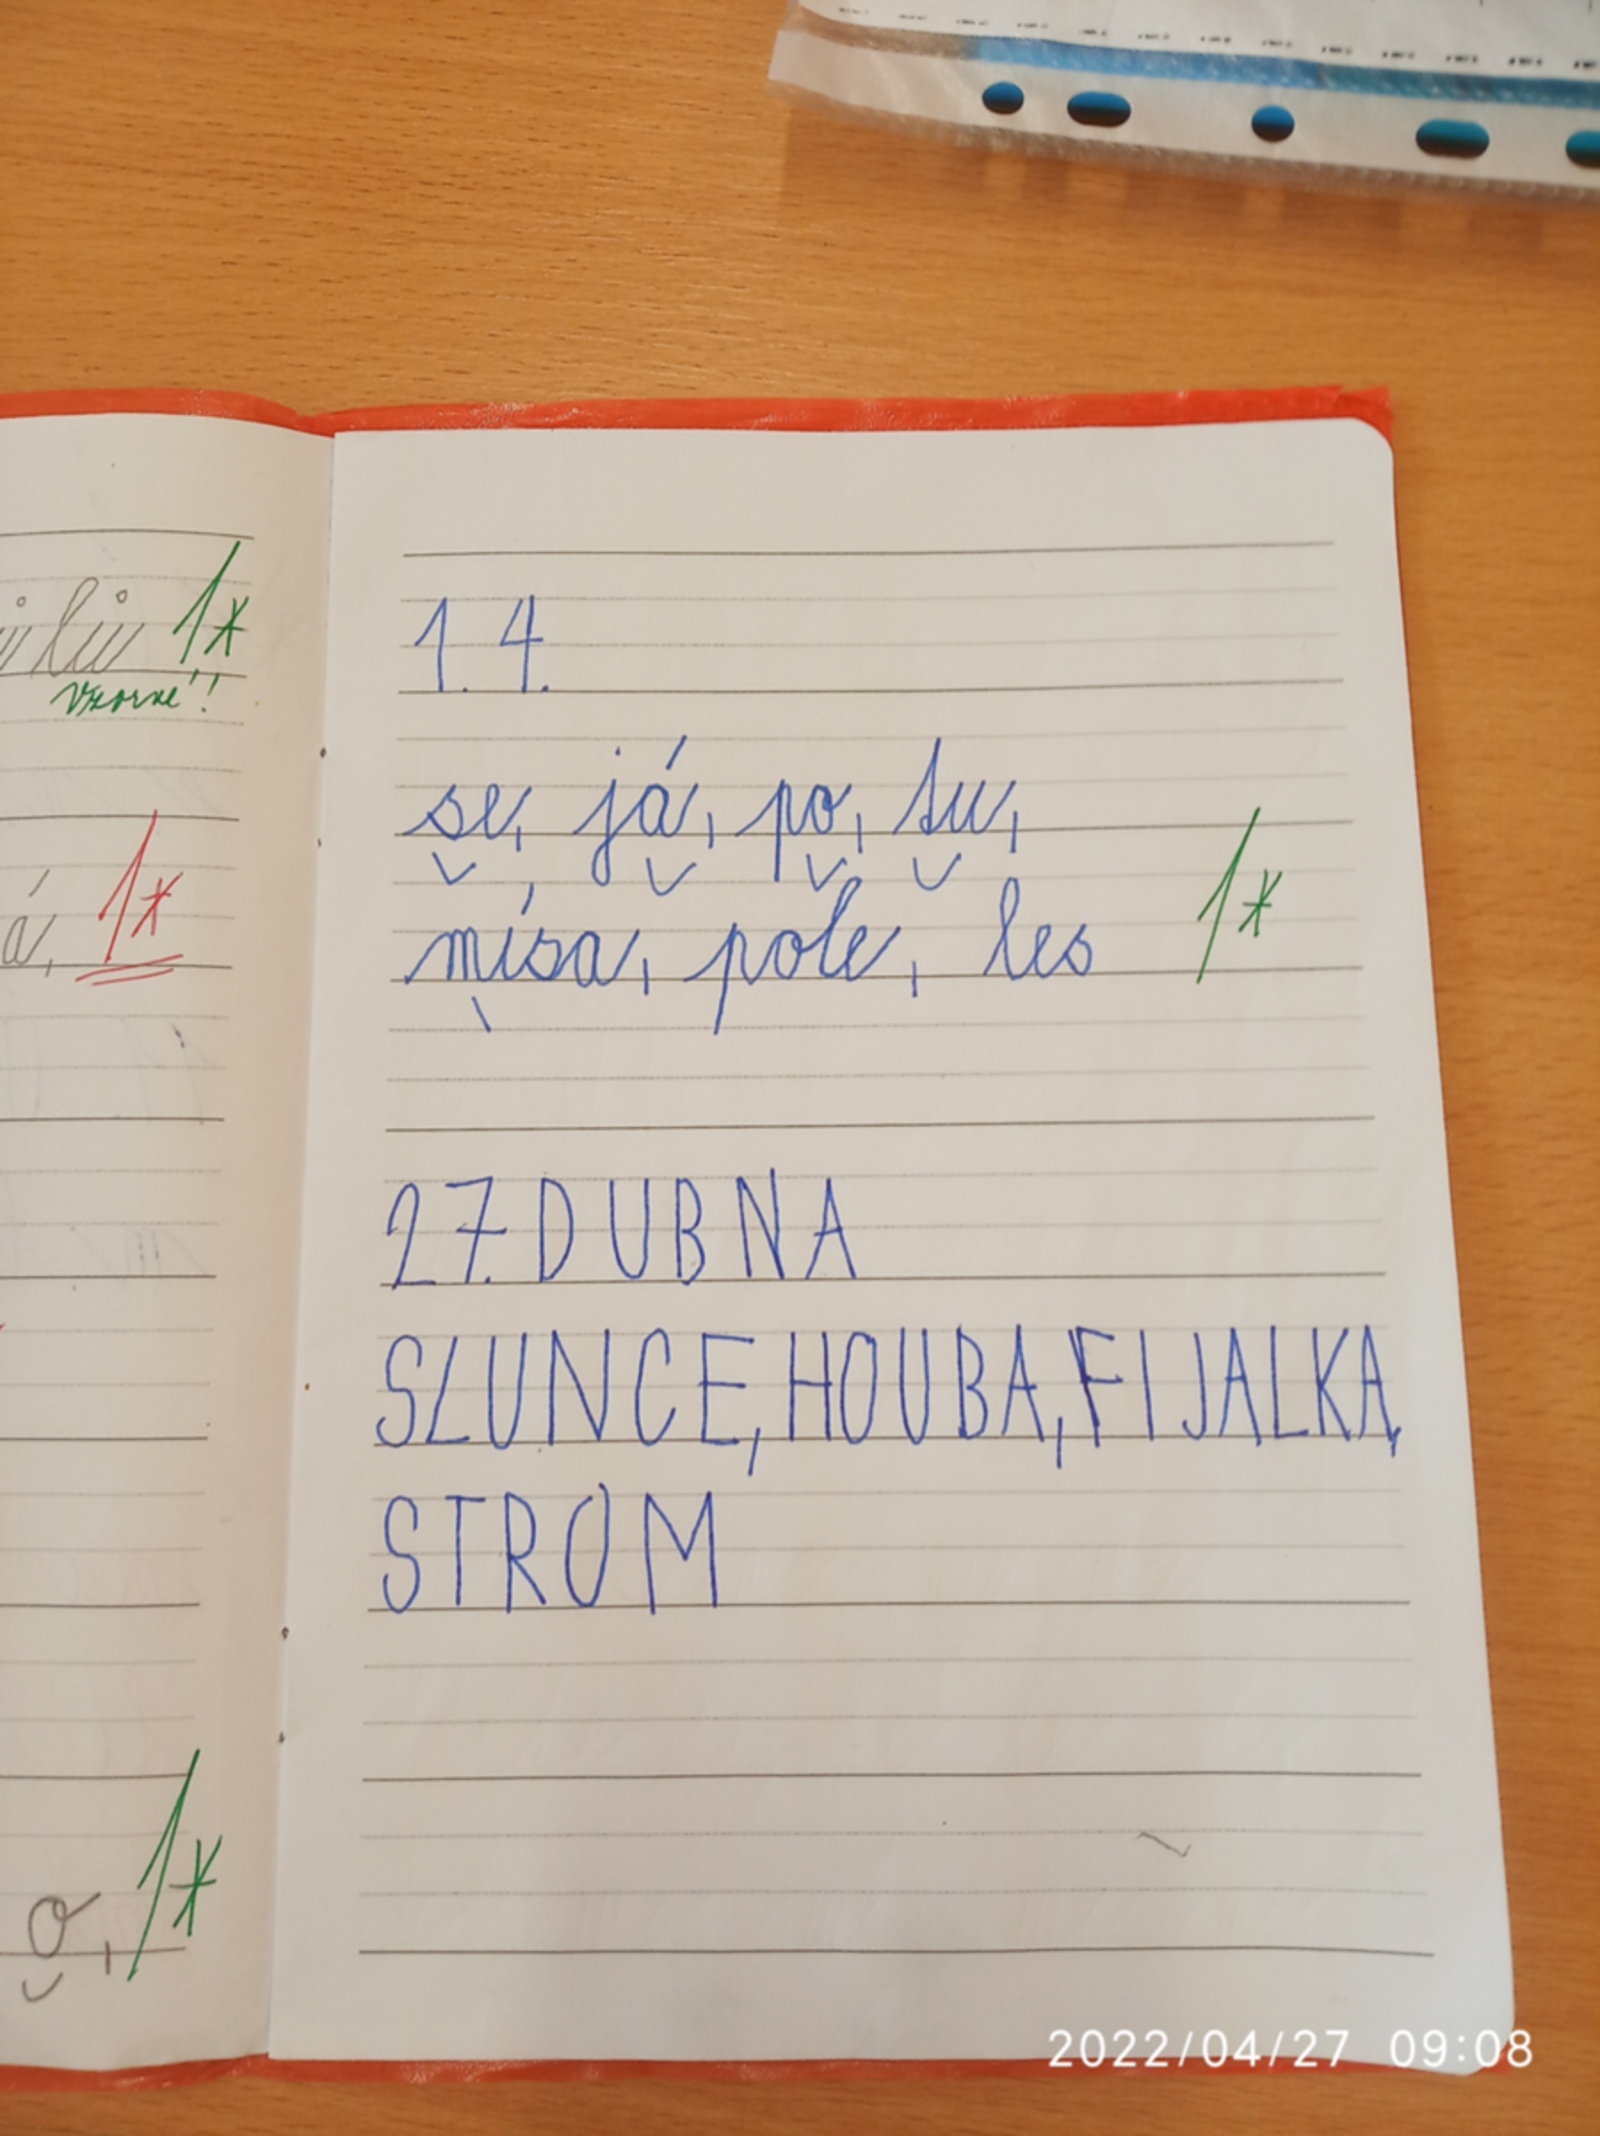 lů 1*
vzorné!!
á, 1*
o, 1*
1. 4.
se, já, po, tu,
mísa, pole, les 1*
27. DUBNA
SLUNCE, HOUBA, FIJALKA,
STROM
2022/04/27 09:08